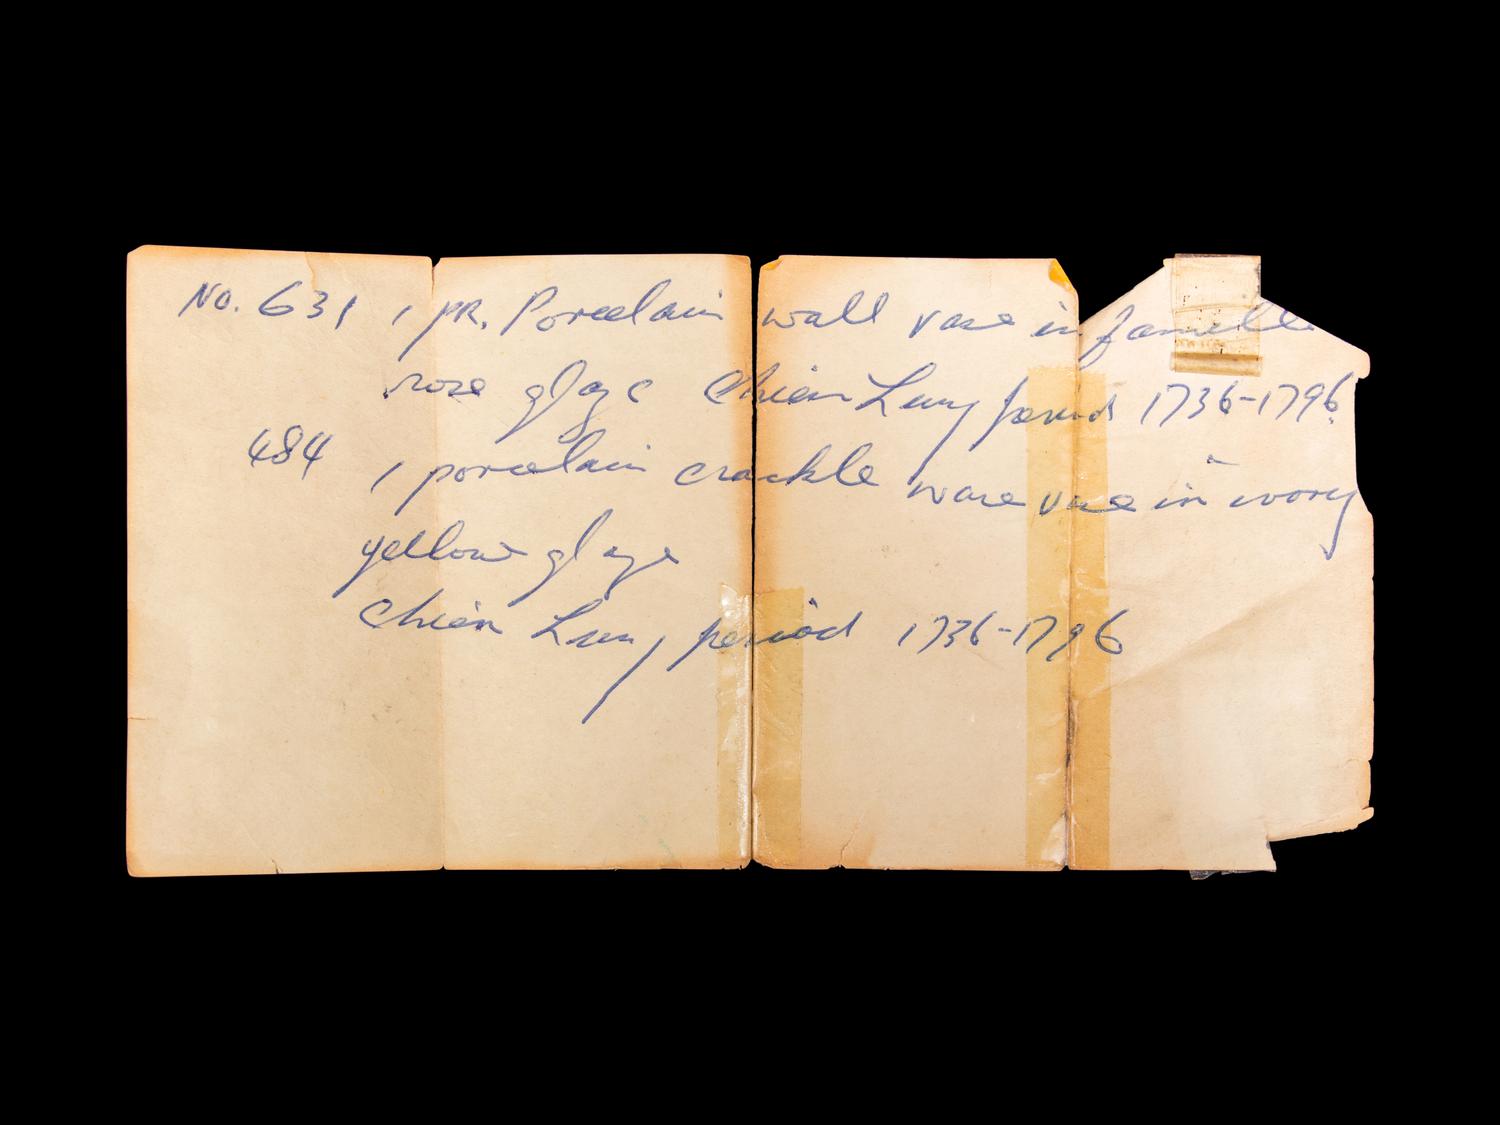 No. 631 1 PR. Porcelain wall vase in famelle
rose glaze Chien Lung period 1736-1796.
484 1 porcelain crackle ware vase in ivory
yellow glaze
Chien Lung period 1736-1796